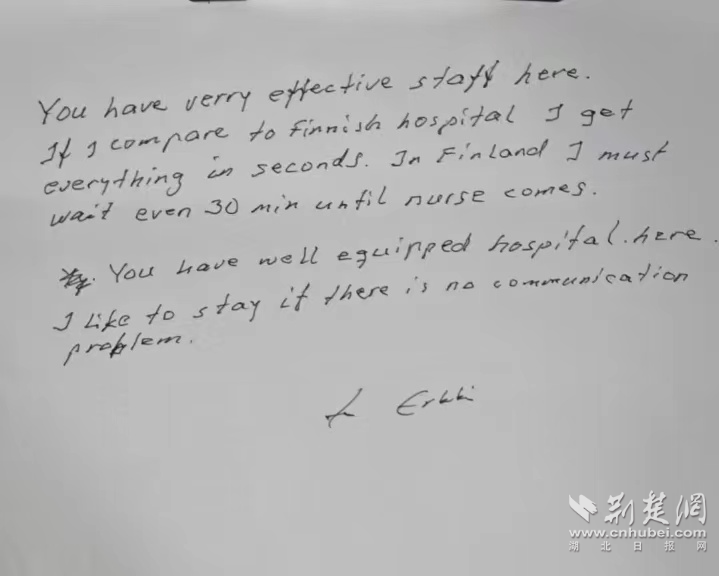 You have verry effective staff here.
If I compare to Finnish hospital I get
everything in seconds. In Finland I must
wait even 30 min until nurse comes.
You have well equipped hospital. here.
I like to stay if there is no communication
problem.
Erkki
荆楚网
www.cnhubei.com
湖北日报网